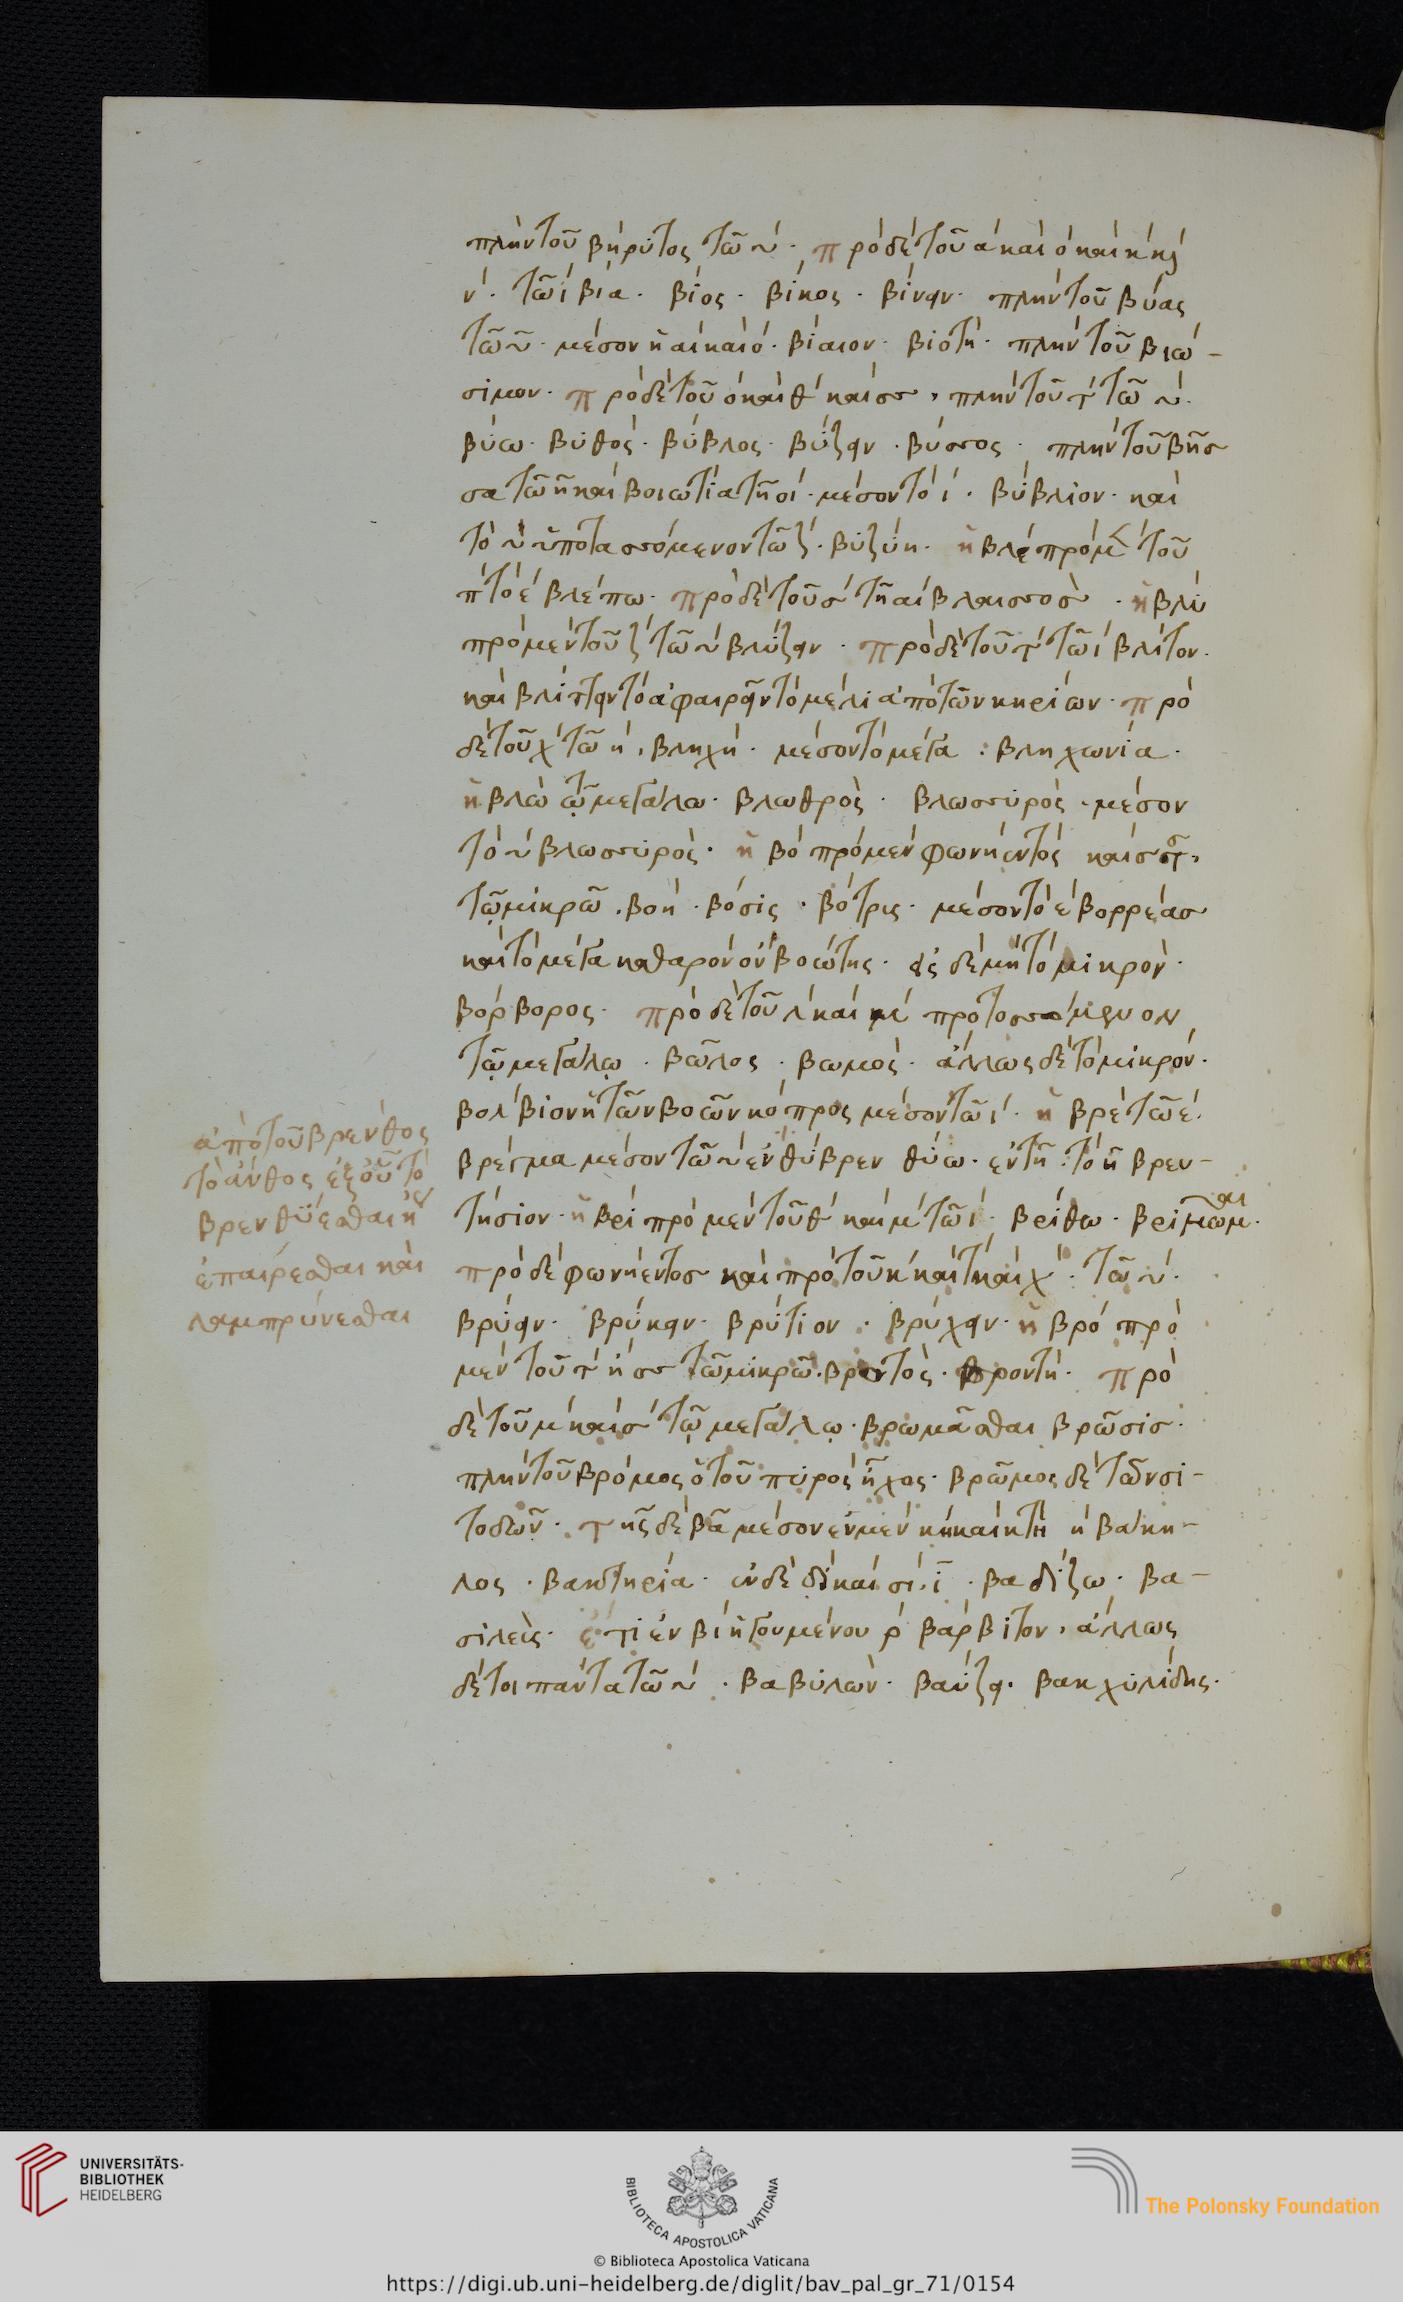 πλὴν τοῦ βήρυτος τῶ υ· πρὸ δὲ τοῦ ά καὶ ό καὶ κ κ
ν· τῶ ί βία· βίος· βίκος· βίνειν· πλὴν τοῦ βύας
τῶ υ· μέσον ἢ αί καὶ ό· βίαιον· βιοτή· πλὴν τοῦ βιώ-
σιμον· πρὸ δὲ τοῦ ό καὶ θ καὶ σσ, πλὴν τοῦ τ τῶ υ·
βύω· βυθός· βύβλος· βύζειν· βύσσος· πλὴν τοῦ βῆσ
σα τῶ η καὶ βοιωτία τῆ οι· μέσον τὸ ί· βύβλιον· καὶ
τὸ υ ὑποτασσόμενον τῶ ζ· βυζύη· ἡ βλε πρὸ μὲν τοῦ
π τὸ έ βλέπω· πρὸ δὲ τοῦ σ τῆ αι βλαισσὸσ· ἡ βλι
πρὸ μὲν τοῦ ζ τῶ υ βλύζειν· πρὸ δὲ τοῦ τ τῶ ι βλίτον·
καὶ βλίττειν τὸ ἀφαιρεῖν τὸ μέλι ἀπὸ τῶν κηρίων· πρὸ
δὲ τοῦ χ τῶ η, βληχή· μέσον τὸ μέγα: βληχωνία·
ἡ βλω τῷ μεγάλω· βλωθρὸς· βλωσσυρὸς· μέσον
τὸ υ βλωσσυρὸς· ἡ βο πρὸ μὲν φωνήεντος καὶ σ
τῷ μικρῶ· βοή· βόσις· βότρις· μέσον τὸ έ βορρέασ
καὶ τὸ μέγα καθαρὸν ὂν βοώτης· εἰς δὲ μὴ τὸ μικρὸν·
βόρβορος· πρὸ δὲ τοῦ λ καὶ μ προτοσσόμενον
τῷ μεγάλῳ· βῶλος· βωμὸς· ἄλλως δὲ τὸ μικρὸν·
βολβιον ἡ τῶν βοῶν κόπρος μέσον τῶ ί· ἡ βρε τῶ έ·
βρέγμα μέσον τῶ υ ἐν θύβρεν θύω· ἐν τῆ το η βρεν-
τήσιον· ἡ βρι πρὸ μὲν τοῦ θ καὶ μ τῶ ί· βρίθω· βριμῶμαι·
πρὸ δὲ φωνήεντοσ καὶ πρὸ τοῦ κ καὶ τ καὶ χ· τῶ υ·
βρύειν· βρύκειν· βρύτιον· βρύχειν· ἡ βρο πρὸ
μὲν τοῦ τ ἢ σσ τῶ μικρῶ· βροντὸς· βροντή· πρὸ
δὲ τοῦ μ καὶ σ τῷ μεγάλῳ· βρωμᾶσθαι βρῶσισ·
πλὴν τοῦ βρόμος ὁ τοῦ πυρὸς ἦχος· βρῶμος δὲ τῶν σι-
τοδιῶν· τῆς δὲ βα μέσον ἐν μὲν κ καὶ κτ ἡ βάκη-
λος· βακτηρία· ἐν δὲ δι καὶ σι· ι· βαδίζω· βα-
σιλεὺς· ἔτι ἐν βι ἡγουμένου ρ βάρβιτον, ἄλλως
δέ τοι πάντα τῶ υ· βαβυλὼν· βαύζει· βακχυλίδης·
ἀπὸ τοῦ βρένθος
τὸ ἄνθος ἐξ οὗ τὸ
βρενθύεσθαι
ἐπαίρεσθαι καὶ
λαμπρύνεσθαι
UNIVERSITÄTS-
BIBLIOTHEK
HEIDELBERG
BIBLIOTECA APOSTOLICA VATICANA
The Polonsky Foundation
© Biblioteca Apostolica Vaticana
https://digi.ub.uni-heidelberg.de/diglit/bav_pal_gr_71/0154